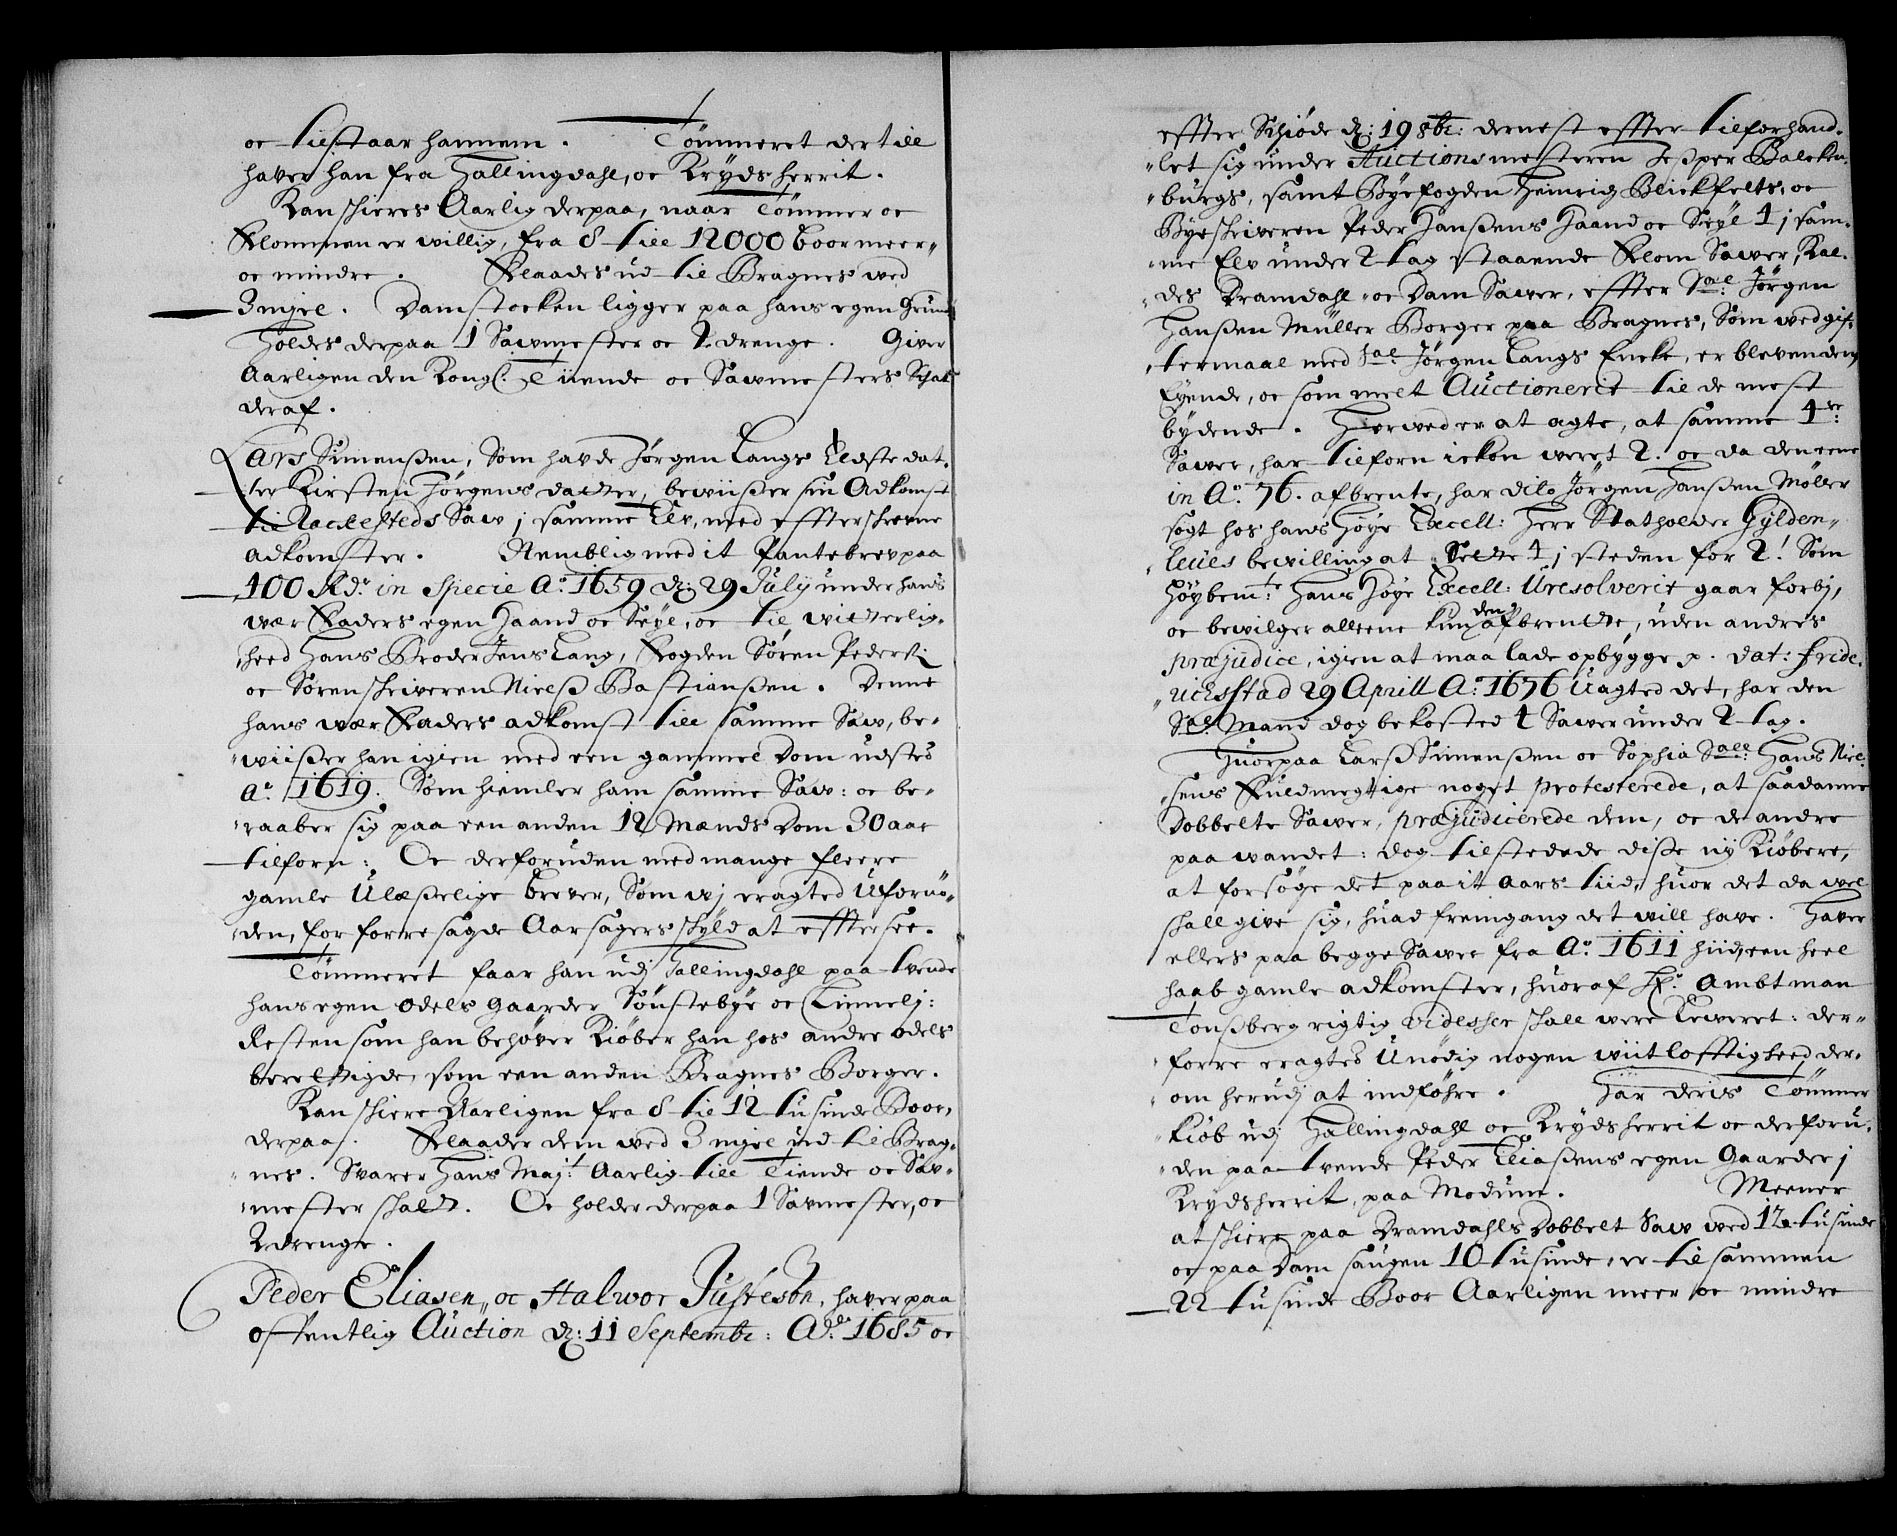 oc tilstaar hannem. Tömmeret der till
haver han fra Hallingdahl, oc Krydsherrit.
Kan skieres Aarlig derpaa, naar Tömmer oc
Flommen er willig, fra 8 till 12000 boor meer
oc mindre. Flaades ud til Bragnes ved
3 mjel. Damstocken ligger paa hans egen Grund
Holdes derpaa 1 Sawmester oc 2 drenge. Giver
Aarligen den Kongl: Tiiende oc Sawmesters Schat
deraf.
Lars Simenßen, Som havde Jørgen Langs Eldste dat-
ter Kirsten Jørgens datter, bewiißer sin Adkomst
til Saw j samme Elv, med effterskrevne
adkomster. Nemblig med it Pantebrev paa
100 Rdr in Specie Ao 1659 d: 29 July under hans
wær Faders egen Haand oc Seyl, oc til witterlig-
heed Hans Broder Jens Lang, Fogden Søren Peders:
oc Sørenskriveren Nielß Bastianßen. Denne
hans wær Faders adkomst till samme Saw, be-
wiißer han igien med een gammel Dom udsted
ao 1619. Som hiemler ham samme Saw: oc be-
raaber sig paa een anden 12 Mænds Dom 30 aar
tilforn: Oc derforuden med mange fleere
gamle Ulæßelige brever, Som wj eragted Ufornö-
den, for forresagde Aarsagers skyld at efftersee.
Tömmeret faar han udj Hallingdahl paa tvende
hans egen Odels Gaarder Sönstebye oc Linnelj:
Resten som han behøver Kiøber han hos andre odels
berettigde, som een anden Bragnes Borger.
Kan skiere Aarligen fra 8 til 12 tusinde Boor,
derpaa. Flaader dem wed 3 mjel ud til Brag-
nes. Svarer Hans Maj:t Aarlig till Tiende oc Sav-
mester skatt. Oc holder derpaa 1 Savmester, oc
2 drenge.
Peder Eliasen, oc Halwor Justesön, haver paa
offentlig Auction d: 11 Septembr: Ao 1685 oc
effter Schiöde d: 19 8br: dernest effter tilforhand-
let sig under Auctionsmesteren Jesper Balcken-
burgs, samt Byefogden Heinrich Blickfelts, oc
Byeskriveren Peder Hanßens Haand oc Seyl 4 j sam-
me Elv under 2 tag staaende Flom Sawer, Kal-
des Dramdahl oc Dam Sawer, effter Sal: Jørgen
Hanßen Müller Borger paa Bragnes, Som wed gif-
termaal med Sal: Jørgen Langs Encke, er bleven dem
Eyende, oc som melt Auctionerit til de mest
bydende. Herwed er at agte, at samme 4re:
Sawer, har tilforn ickon weret 2. oc da den eene
in Ao. 76. afbrente, har dito Jörgen Hanßen Möller
søgt hos hans Høye Excell: Herr Statholder Gylden-
leües bewilling at Sette 4 j steden for 2! Som
Höybem:te Hans Høye Excell: Uresolverit gaar forbj,
oc bewilger alleene kun den afbrendte, uden andres
præjudice, igien at maa lade opbygge p. dat: Fride-
richstad 29 Aprill Ao 1676 Uagted det, har den
Sal: Mand dog bekosted 4 Sawer under 2 tag.
Huorpaa Larß Simenßen oc Sophia Sall: Hans Niel-
sens Fuldmegtige noget protesterede, at saadanne
Dobbelte Sawer, præjudicerede dem, oc de andre
paa wandet: dog tilstedede diße nÿ Kiöbere,
at forsöge det paa it Aars tiid, huor det da wel
skall give sig, huad fremgang det will have. Haver
ellers paa begge Sawer fra Ao. 1611 hiid, een heel
haab gamle adkomster, huoraf Hr. Ambtman
Tonßberg rigtig Vidisser skall were leweret: der-
forre eragtes Unödig nogen wiitlofftigheed der-
om herudj at indføhre. Har deris Tömmer
kiöb udj Hallingdahl oc Krydsherrit oc derforu-
den paa tvende Peder Eliaßens egen Gaarder j
Krydsherrit, paa Modum. Meener
at skiere paa Dramdahls Dobbelt Saw wed 12 tusinde
oc paa Dam saugen 10 tusinde, er tilsammen
22 tusinde Boor Aarligen meer oc mindre